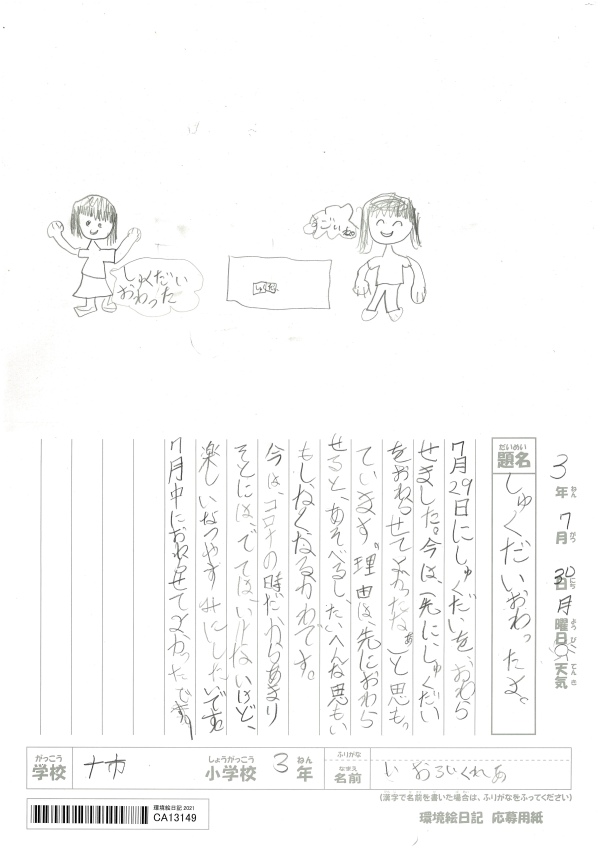 すごいね。
しゅくだい
おわった
3年7月30日月曜日天気
ねん がつ にち ようび てんき
だいめい
題名
しゅくだいおわったよ。
7月29日にしゅくだいを、おわら
せました。今は、(先にしゅくだい
をおわらせてよかったなぁ)と思も。
ています。理由は、先におわら
せると、あそべるし、たいへんな思もい
もしなくなるかわです。
今は、コロナの時だからあまり
そとには、でてはいけないけど、
楽しいなつやすみにしたいです。
7月中におわらせてよかったです。
がっこう
学校
しょうがっこう
小学校
3
ねん
年
ふりがな
なまえ
名前
(漢字で名前を書いた場合は、ふりがなをふってください)
環境絵日記 2021
CA13149
環境絵日記 応募用紙